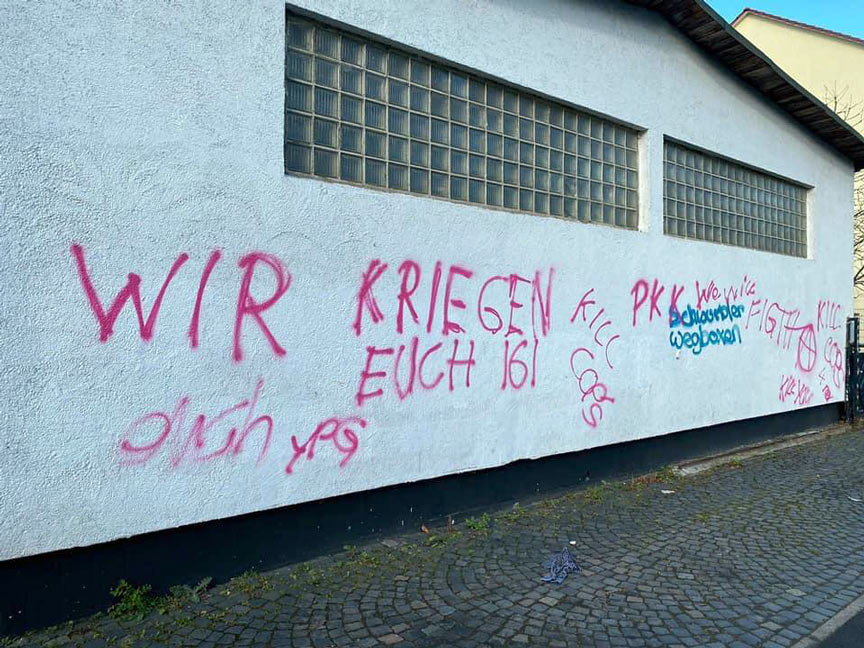 WIR KRIEGEN
EUCH 161
YPG
KILL
COPS
PKK We will
FIGTH
Schwurbler
wegboxen
KILL
COPS
KILL